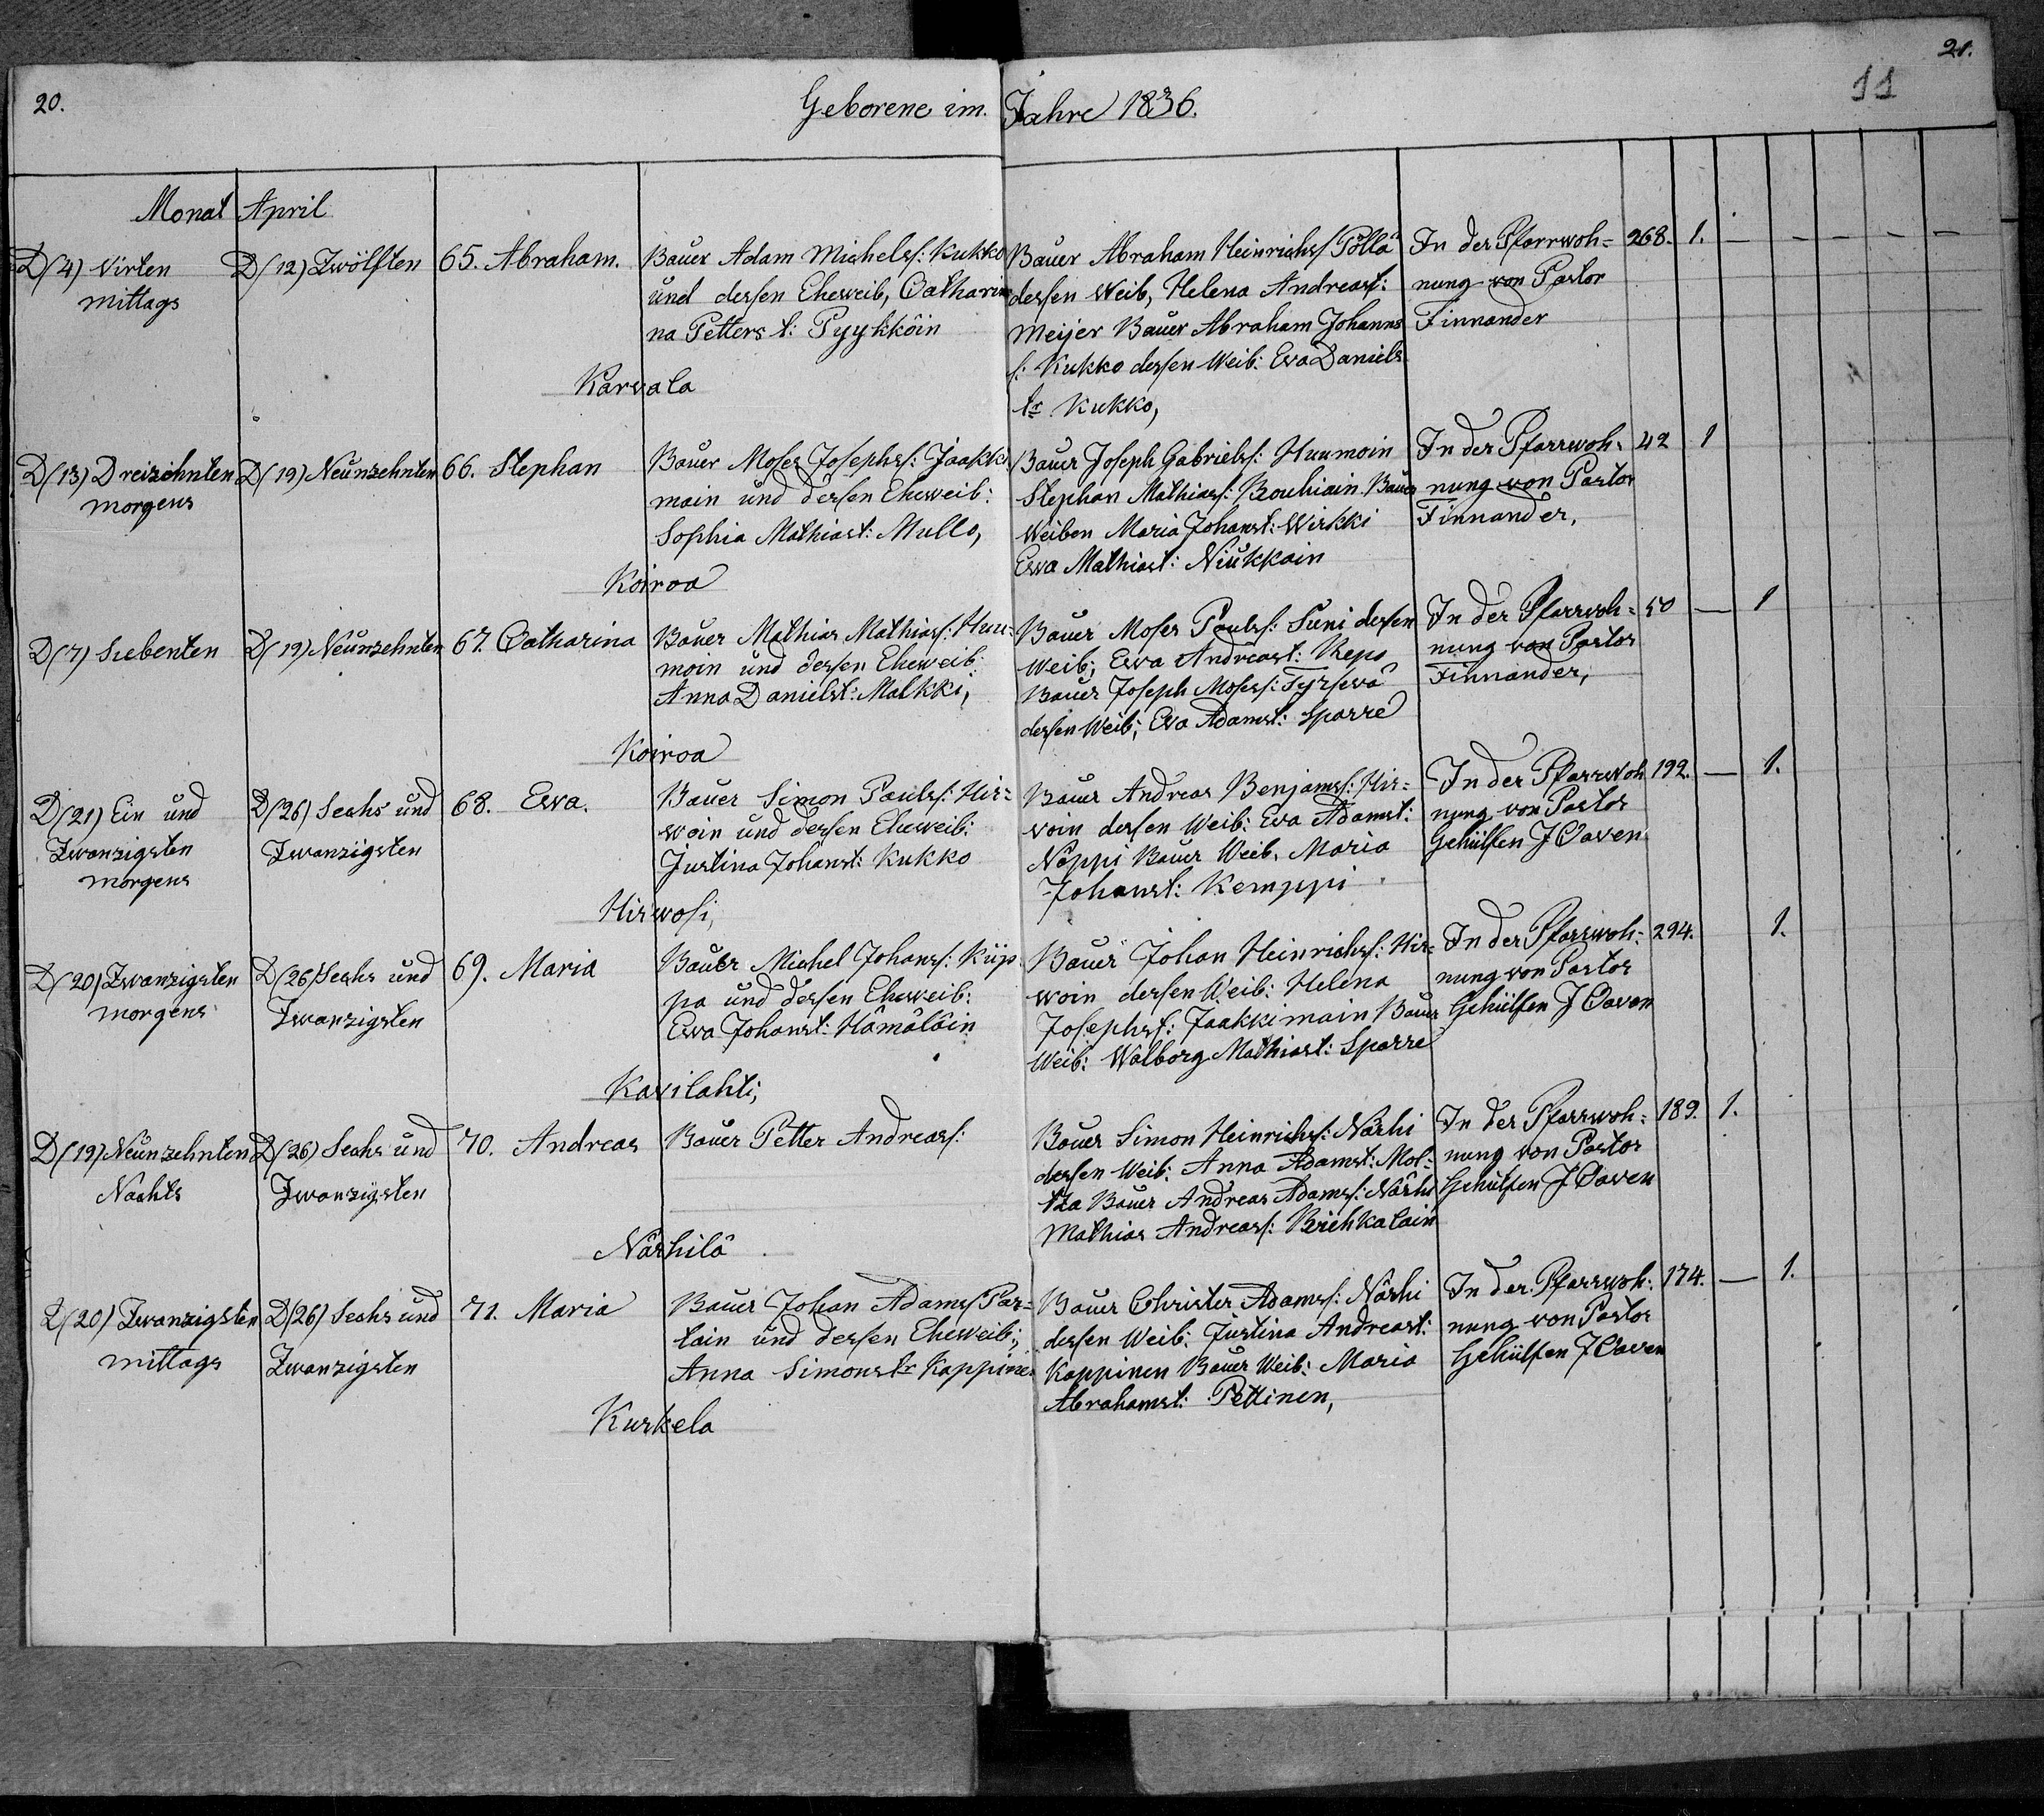 20.
21.
11
Geborene im Jahre 1836.
Monat April
D(4) Virten
mittags
D(12) Zwölften
65. Abraham.
Bauer Adam Michels: Kukko
und dessen Eheweib, Cathari
na Petters t: Pyykköin
Karvala
Bauer Abraham Heinrichs: Pöllä
dessen Weib, Helena Andreast:
Meijer Bauer Abraham Johanns
s: Kukko dessen Weib: Eva Daniels
tr Kukko,
In der Pfarrwoh=
nung von Pastor
Finnander
268. 1. — — — — —
D(13) Dreizehnten
morgens
D(19) Neunzehnten
66. Stephan
Bauer Moses Josephs: Jaakki
main und dessen Eheweib:
Sophia Mathiast: Mullo,
Koiroa
Bauer Joseph Gabriels: Huumoin
Stephan Mathias: Bouhiain Bauer
Weiben Maria Johanst: Wirkki
Ewa Mathiast: Niukkain
In der Pfarrwoh=
nung von Pastor
Finnander,
42 1
D(7) Siebenten
D(19) Neunzehnten
67. Catharina
Bauer Mathias Mathias: Huu=
moin und dessen Eheweib:
Anna Danielst: Malkki,
Koiroa
Bauer Moses Pauls: Suni dessen
Weib; Ewa Andreast: Repo
Bauer Joseph Moses: Tyrsewä
dessen Weib; Eva Adamst: Sparre
In der Pfarrwoh=
nung von Pastor
Finnander,
50 — 1
D(21) Ein und
Zwanzigsten
morgens
D(26) Sechs und
Zwanzigsten
68. Ewa.
Bauer Simon Pauls: Hir=
woin und dessen Eheweib:
Justina Johanst: Kukko
Hirwosi,
Bauer Andreas Benjams: Hir=
voin dessen Weib: Eva Adamst:
Noppi Bauer Weib, Maria
Johanst: Kemppi
In der Pfarrwoh
nung von Pastor
Gehülfen J Caven
192. — 1.
D(20) Zwanzigsten
morgens
D(26) Sechs und
Zwanzigsten
69. Maria
Bauer Michel Johans: Kiip
pa und dessen Eheweib:
Ewa Johanst: Hämäläin
Kavilahti,
Bauer Johan Heinrichs: Hir=
woin dessen Weib: Helena
Josephst: Jaakkimain Bauer
Weib: Walborg Mathiast: Sparre
In der Pfarrwoh=
nung von Pastor
Gehülfen J Caven
294. 1.
D(19) Neunzehnten
Nachts
D(26) Sechs und
Zwanzigsten
70. Andreas
Bauer Petter Andreas:
Närhilä
Bauer Simon Heinrichs: Närhi
dessen Weib: Anna Adamst: Mol=
tza Bauer Andreas Adams: Närhi
Mathias Andreas: Brihkalain
In der Pfarrwoh=
nung von Pastor
Gehülfen J Caven
189. 1.
D(20) Zwanzigsten
mittags
D(26) Sechs und
Zwanzigsten
71. Maria
Bauer Johan Adams: Par=
tain und dessen Eheweib:,
Anna Simonstr Koppinen
Kurkela
Bauer Christer Adams: Närhi
dessen Weib: Justina Andreast:
Koppinen Bauer Weib: Maria
Abrahamst: Pettinen,
In der Pfarrwoh=
nung von Pastor
Gehülfen J Caven
174. — 1.